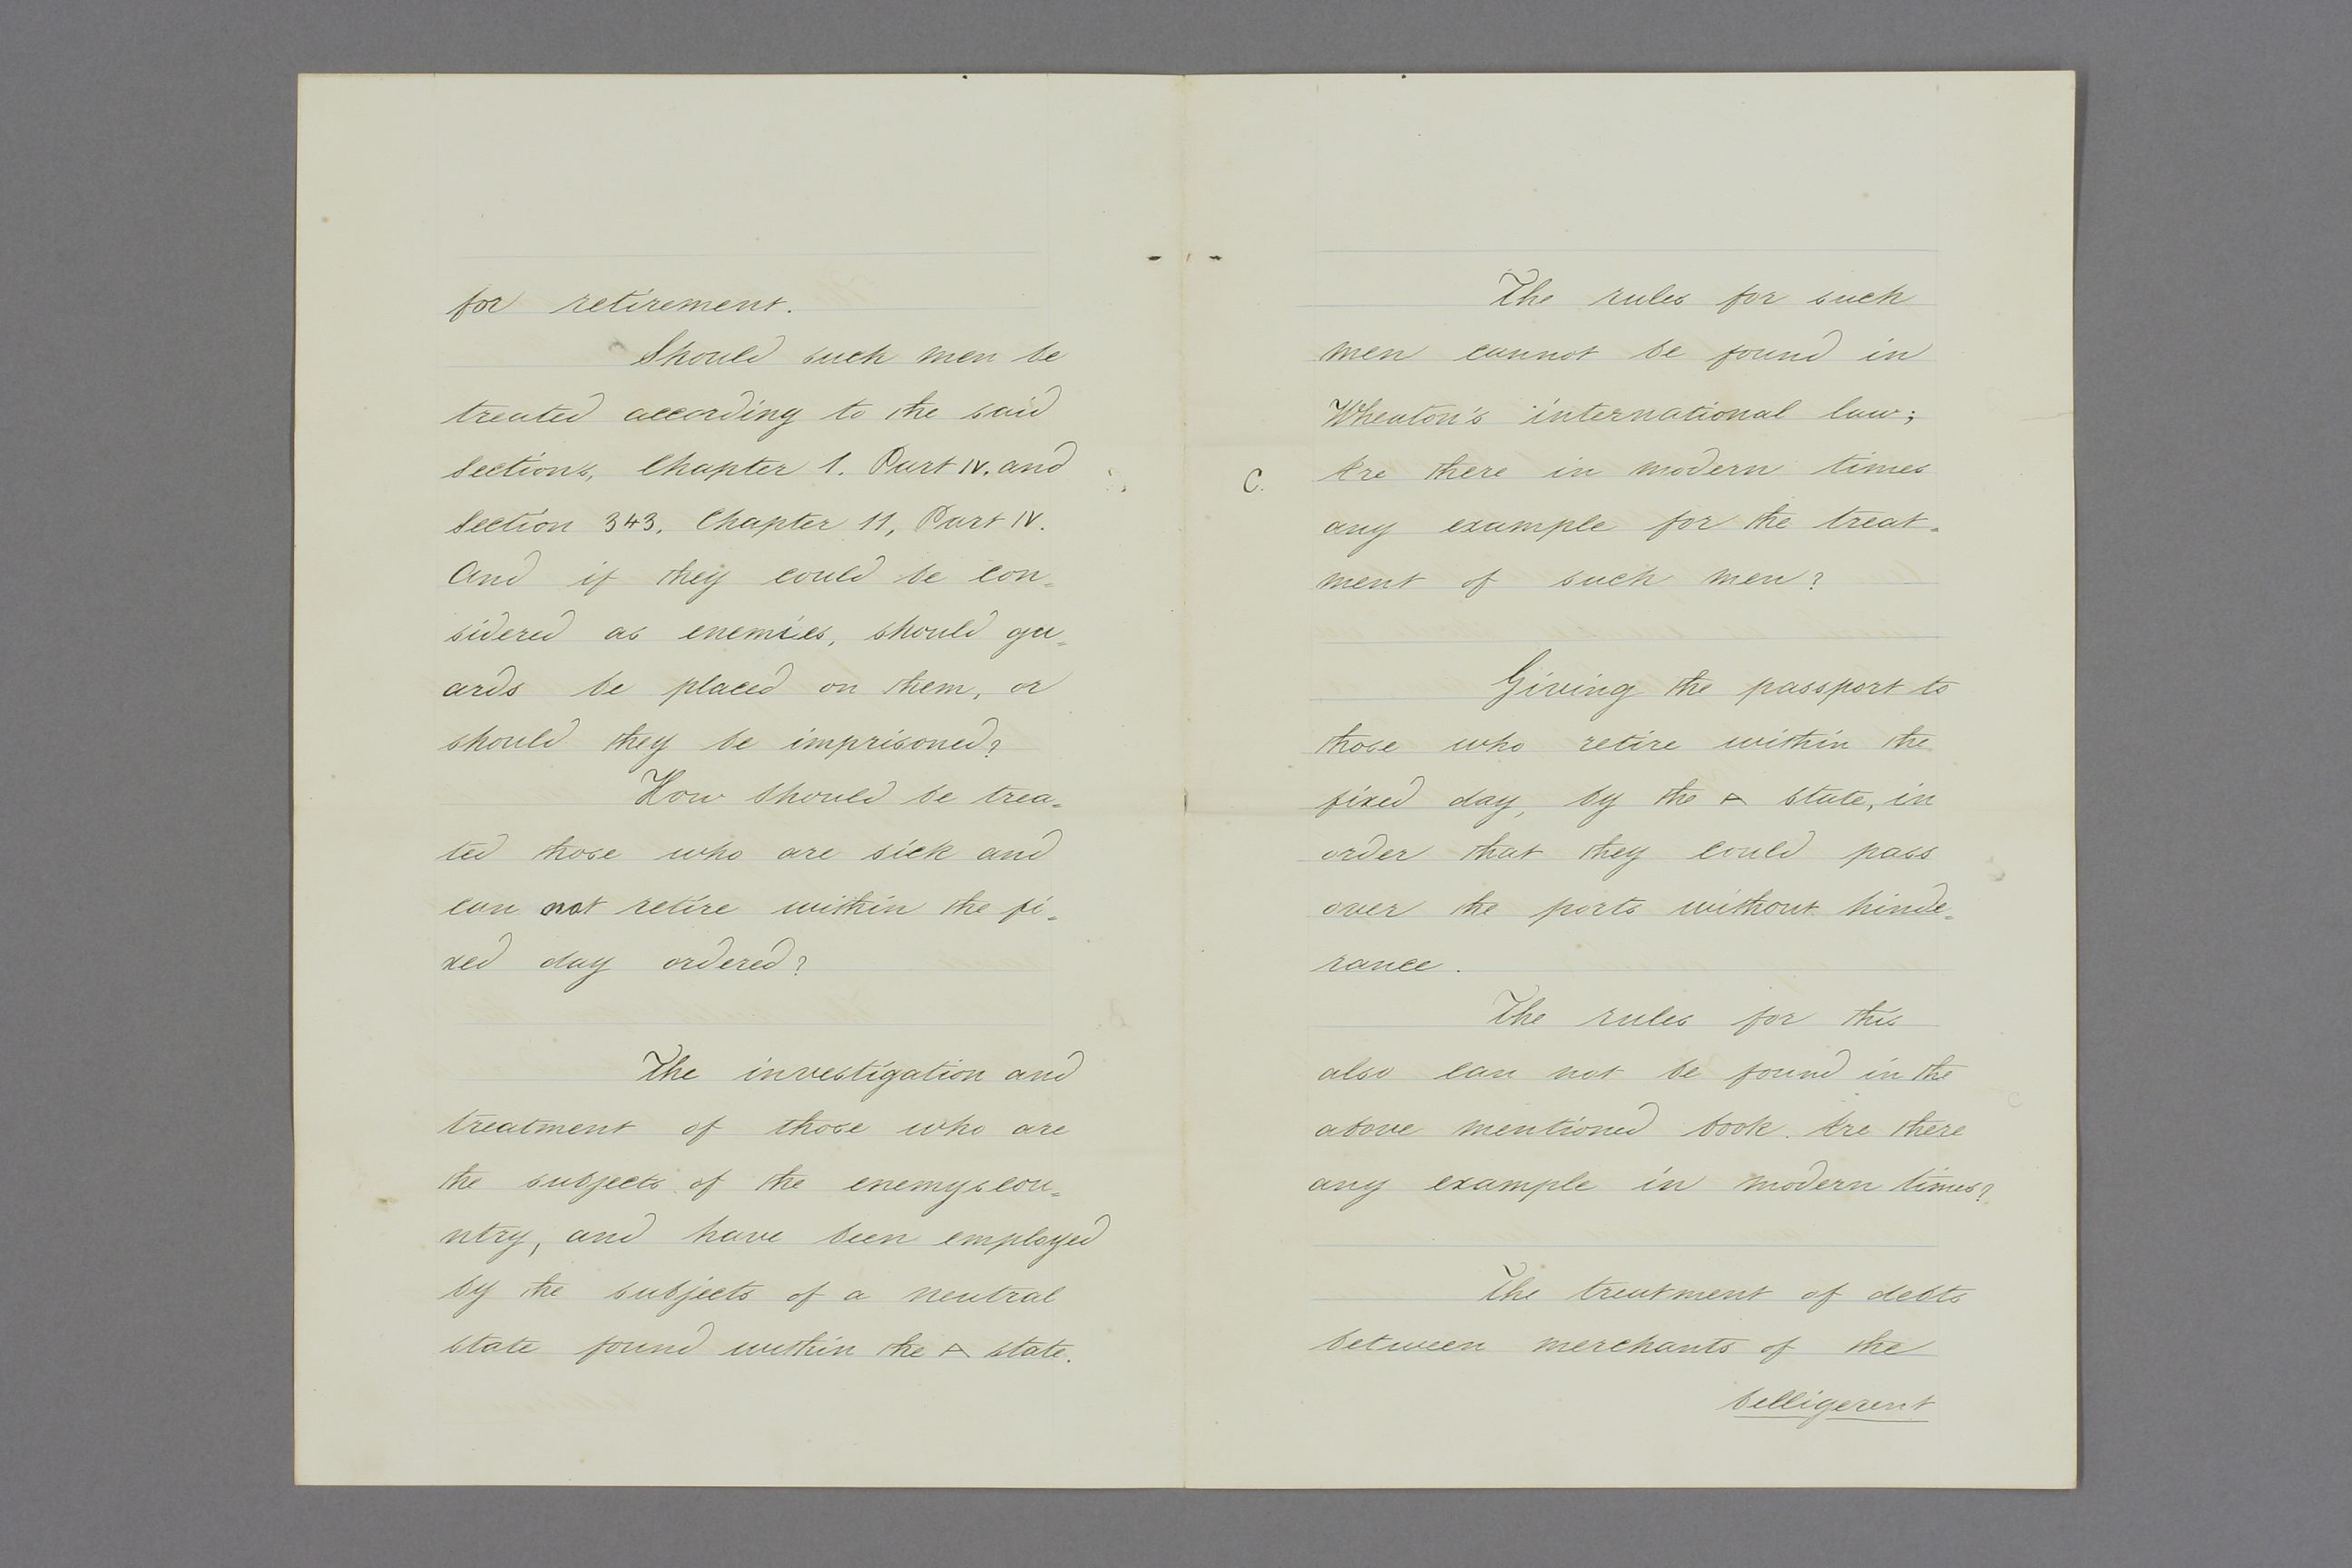 for retirement.
Should such men be
treated according to the said
sections, Chapter 1. Part IV. and
section 343, Chapter 11, Part IV.
And if they could be con=
sidered as enemies, should gu=
ards be placed on them, or
should they be imprisoned?
How should be trea=
ted those who are sick and
can not retire within the fi=
xed day ordered?
The investigation and
treatment of those who are
the subjects of the enemys cou=
ntry, and have been employed
by the subjects of a neutral
state found within the A state.
The rules for such
men cannot be found in
Wheaton's international law;
C. Are there in modern times
any example for the treat=
ment of such men?
Giving the passport to
those who retire within the
fixed day, by the A state, in
order that they could pass
over the ports without hinde=
rance.
The rules for this
also can not be found in the
above mentioned book. Are there
any example in modern times?
The treatment of debts
between merchants of the
belligerent